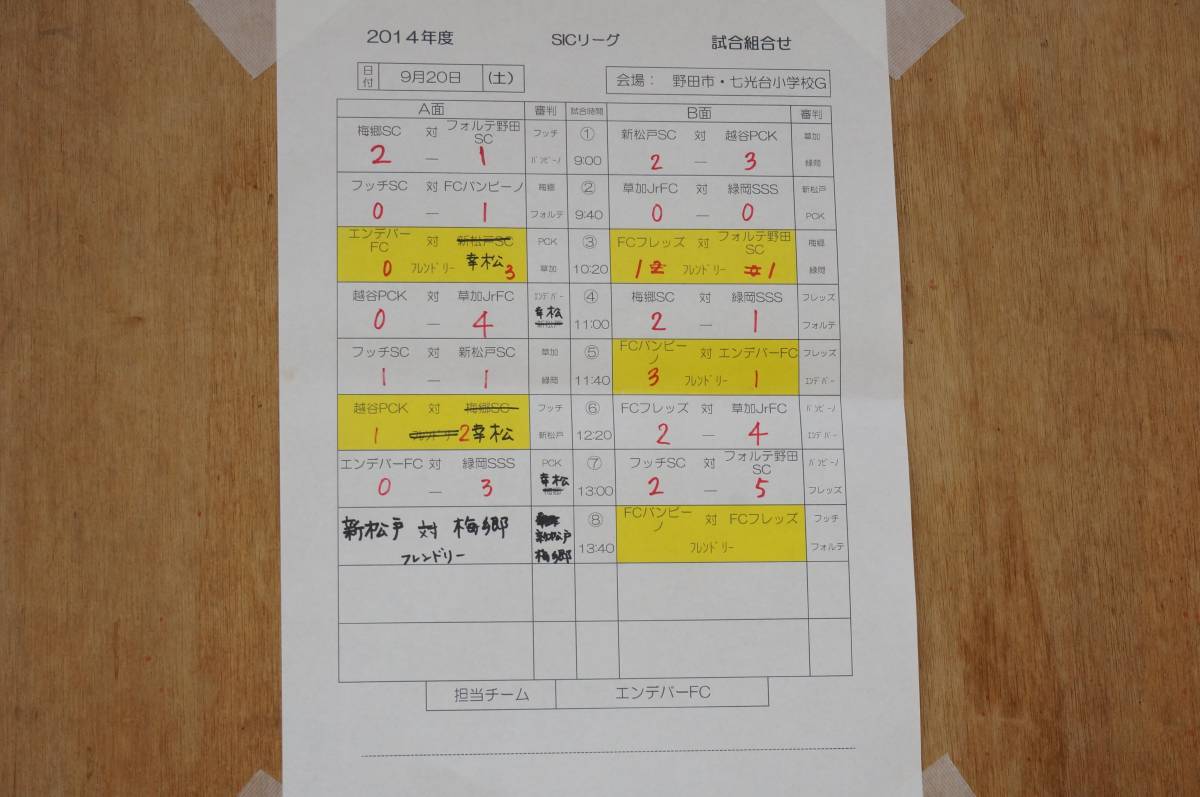 2014年度 SICリーグ 試合組合せ
日付 9月20日 (土) 会場： 野田市・七光台小学校G
A面 審判 試合時間 B面 審判
梅郷SC 対 フォルテ野田SC フッチ ① 新松戸SC 対 越谷PCK 草加
2 ― 1 バンビーノ 9:00 2 ― 3 緑岡
フッチSC 対 FCバンビーノ 梅郷 ② 草加JrFC 対 緑岡SSS 新松戸
0 ― 1 フォルテ 9:40 0 ― 0 PCK
エンデバーFC 対 新松戸SC PCK ③ FCフレッズ 対 フォルテ野田SC 梅郷
0 フレンドリー 幸松 3 草加 10:20 1 フレンドリー 1 緑岡
越谷PCK 対 草加JrFC エンデバー ④ 梅郷SC 対 緑岡SSS フレッズ
0 ― 4 幸松 新松戸 11:00 2 ― 1 フォルテ
フッチSC 対 新松戸SC 草加 ⑤ FCバンビーノ 対 エンデバーFC フレッズ
1 ― 1 緑岡 11:40 3 フレンドリー 1 エンデバー
越谷PCK 対 梅郷SC フッチ ⑥ FCフレッズ 対 草加JrFC バンビーノ
1 フレンドリー 2 幸松 新松戸 12:20 2 ― 4 エンデバー
エンデバーFC 対 緑岡SSS PCK ⑦ フッチSC 対 フォルテ野田SC バンビーノ
0 ― 3 幸松 13:00 2 ― 5 フレッズ
新松戸 対 梅郷 新松戸 ⑧ FCバンビーノ 対 FCフレッズ フッチ
フレンドリー 梅郷 13:40 フレンドリー フォルテ
担当チーム エンデバーFC